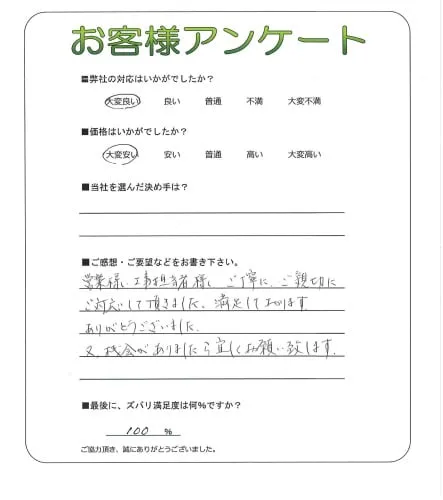 お客様アンケート
■弊社の対応はいかがでしたか？
大変良い 良い 普通 不満 大変不満
■価格はいかがでしたか？
大変安い 安い 普通 高い 大変高い
■当社を選んだ決め手は？
■ご感想・ご要望などをお書き下さい。
営業様、工事担当者様、ご丁寧に、ご親切に
ご対応して頂きました。満足しております。
ありがとうございました。
又、機会がありましたら宜しくお願い致します。
■最後に、ズバリ満足度は何％ですか？
100 %
ご協力頂き、誠にありがとうございました。